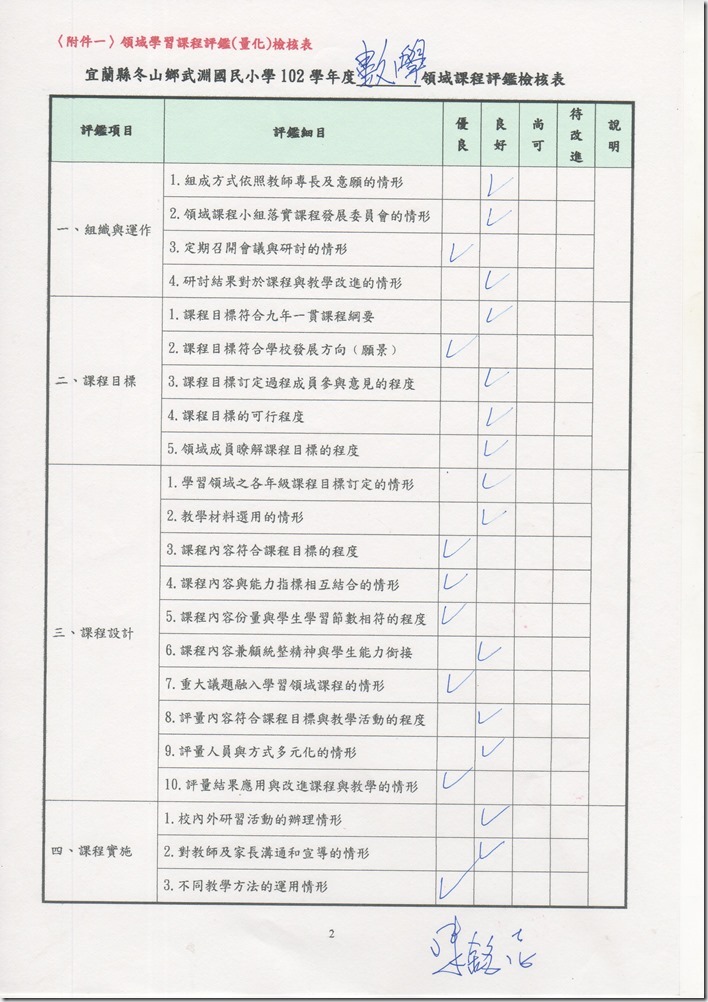 〈附件一〉領域學習課程評鑑(量化)檢核表
宜蘭縣冬山鄉武淵國民小學102學年度數學領域課程評鑑檢核表
評鑑項目 評鑑細目 優良 良好 尚可 待改進 說明
一、組織與運作
1.組成方式依照教師專長及意願的情形 ✓
2.領域課程小組落實課程發展委員會的情形 ✓
3.定期召開會議與研討的情形 ✓
4.研討結果對於課程與教學改進的情形 ✓
二、課程目標
1.課程目標符合九年一貫課程綱要 ✓
2.課程目標符合學校發展方向（願景） ✓
3.課程目標訂定過程成員參與意見的程度 ✓
4.課程目標的可行程度 ✓
5.領域成員瞭解課程目標的程度 ✓
三、課程設計
1.學習領域之各年級課程目標訂定的情形 ✓
2.教學材料選用的情形 ✓
3.課程內容符合課程目標的程度 ✓
4.課程內容與能力指標相互結合的情形 ✓
5.課程內容份量與學生學習節數相符的程度 ✓
6.課程內容兼顧統整精神與學生能力銜接 ✓
7.重大議題融入學習領域課程的情形 ✓
8.評量內容符合課程目標與教學活動的程度 ✓
9.評量人員與方式多元化的情形 ✓
10.評量結果應用與改進課程與教學的情形 ✓
四、課程實施
1.校內外研習活動的辦理情形 ✓
2.對教師及家長溝通和宣導的情形 ✓
3.不同教學方法的運用情形 ✓
2